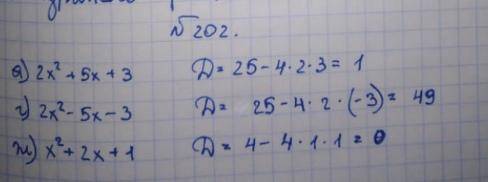 № 202.
а) 2x² + 5x + 3 D = 25 - 4 · 2 · 3 = 1
г) 2x² - 5x - 3 D = 25 - 4 · 2 · (-3) = 49
ж) x² + 2x + 1 D = 4 - 4 · 1 · 1 = 0